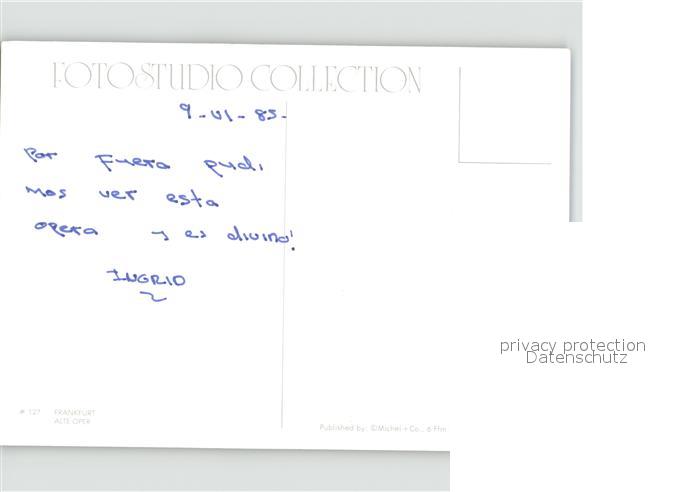 FOTOSTUDIO COLLECTION
9-VI-85-
Por fuera pudi
mos ver esta
opera y es divino!
INGRID
# 127 FRANKFURT
ALTE OPER
Published by: ©Michel+Co., 6 Ffm
privacy protection
Datenschutz